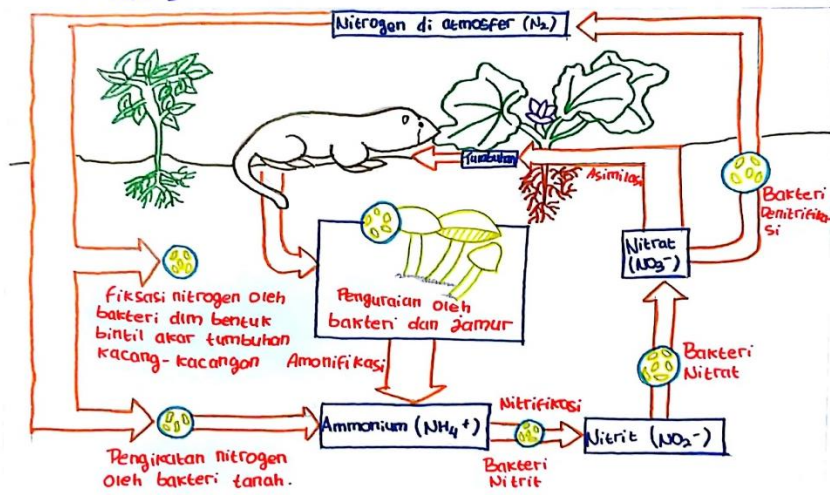 Nitrogen di atmosfer (N₂)
Tumbuhan
Asimilasi
Bakteri
Denitrifika-
si
Nitrat
(NO₃⁻)
Fiksasi nitrogen oleh
bakteri dlm bentuk
bintil akar tumbuhan
kacang-kacangan
Penguraian oleh
bakteri dan jamur
Amonifikasi
Bakteri
Nitrat
Ammonium (NH₄⁺)
Nitrifikasi
Bakteri
Nitrit
Nitrit (NO₂⁻)
Pengikatan nitrogen
oleh bakteri tanah.